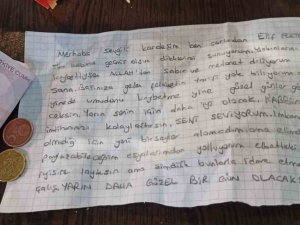 Merhaba sevgili kardeşim ben sarıladan Elif
geçmiş olsun dileklerimi sunuyorum. Yakınlarını
kaybettiysen Allah'tan sabır ve metanet diliyorum
Sana. Başınıza gelen felaketin tarifi yok biliyorum
yinede umudunu kaybetme yine güzel günler
ceksin. Yarın senin için daha iyi olacak. RABBİM
imtihanınızı kolaylaştırsın. SENİ SEVİYORUM.
olmadığı için yeni birşeyler alamadım ama
eşyalarımdan yolluyorum elbette
iyisine layıksın ama şimdilik bunlarla idare etme
çalış. YARIN DAHA GÜZEL BİR GÜN OLACAK